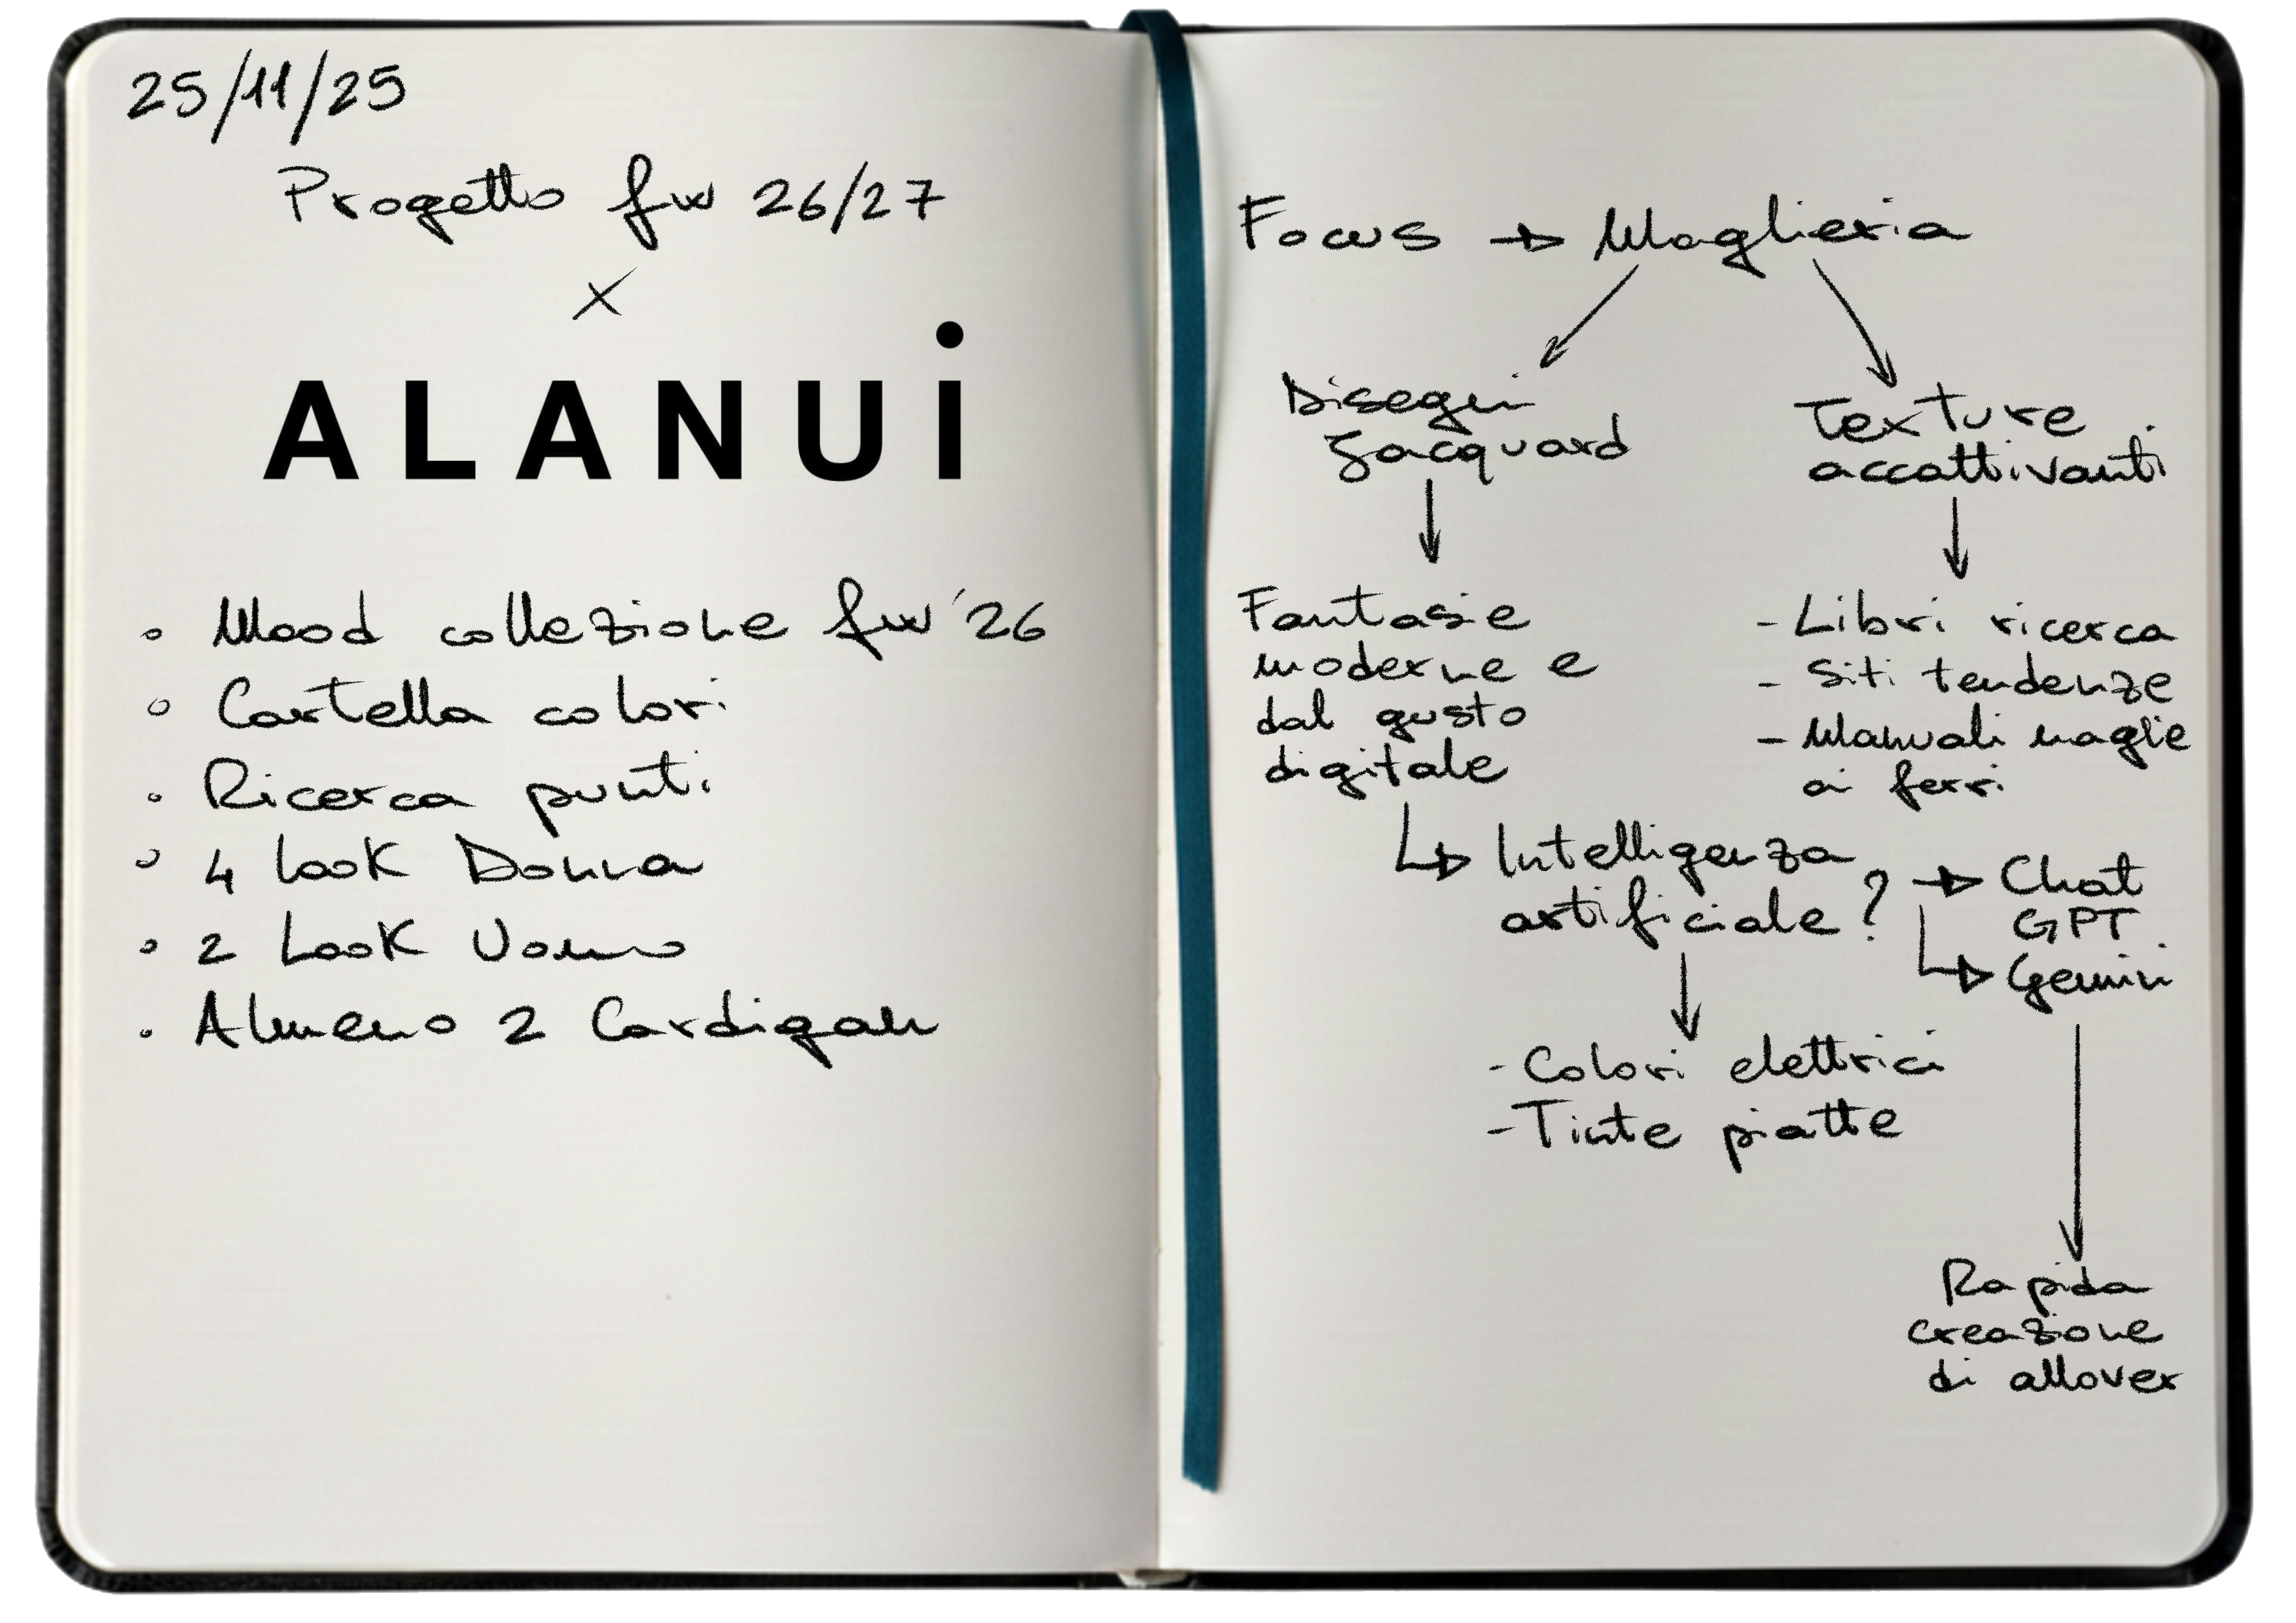 25/11/25
Progetto fw 26/27
X
ALANUi
• Mood collezione fw '26
• Cartella colori
• Ricerca punti
• 4 look Donna
• 2 Look Uomo
• Almeno 2 Cardigan
Focus → Maglieria
Disegni
Jacquard
Texture
accattivanti
Fantasie
moderne e
dal gusto
digitale
- Libri ricerca
- Siti tendenze
- Manuali maglie
ai ferri
↳ Intelligenza
artificiale?
→ Chat
GPT
↳ Gemini
- Colori elettrici
- Tinte piatte
Rapida
creazione
di allover